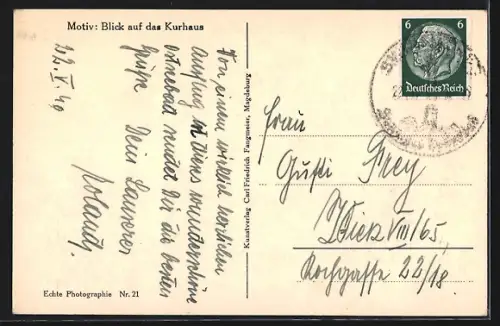 Motiv: Blick auf das Kurhaus
22.V.40
Von einem wirklich herrlichen
Ausflug in dieses wunderschöne
Ostseebad sendet Dir die besten
Grüße Dein
Kunstverlag Carl Friedrich Fangmeier, Magdeburg
6 6
Deutsches Reich
Frau
Gusti Frey
Wien VIII/65,
Kochgasse 22/18.
Echte Photographie Nr. 21